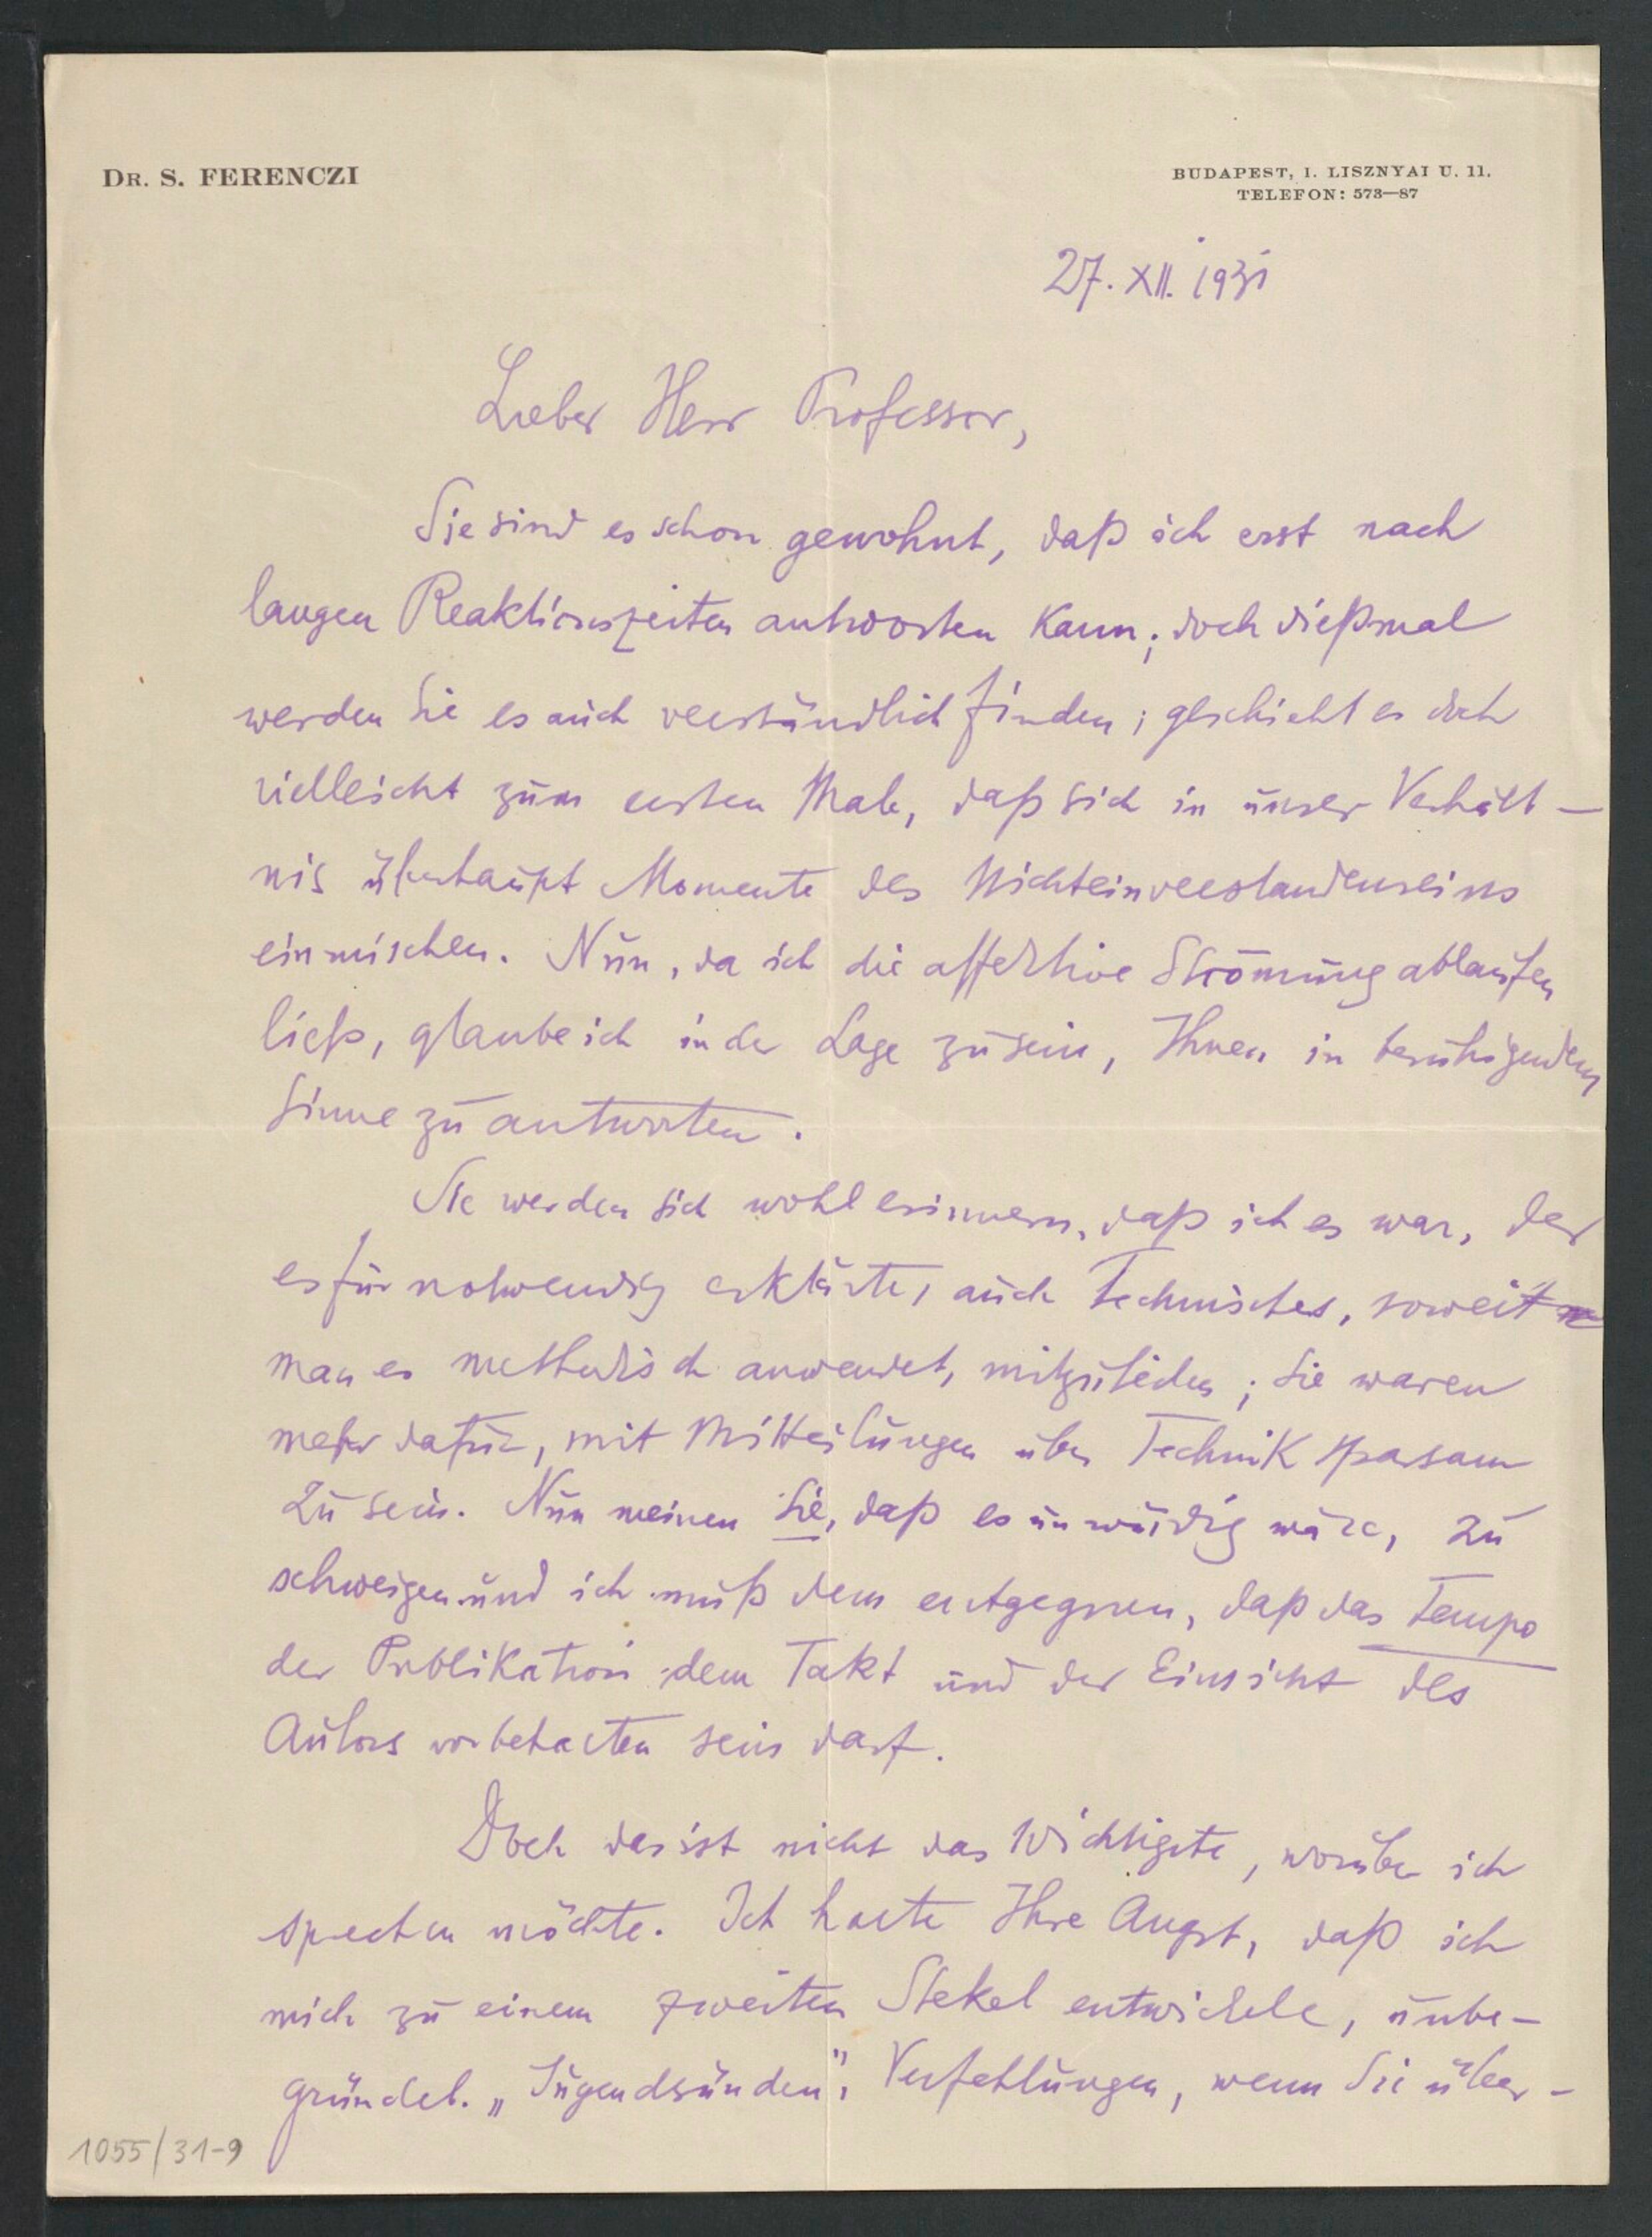 DR. S. FERENCZI
BUDAPEST, I. LISZNYAI U. 11.
TELEFON: 573—87
27. XII. 1931
Lieber Herr Professor,
Sie sind es schon gewohnt, daß ich erst nach
langen Reaktionszeiten antworten kann; doch dießmal
werden Sie es auch verständlich finden; geschieht es doch
vielleicht zum ersten Male, daß sich in unser Verhält-
nis überhaupt Momente des Nichteinverstandenseins
einmischen. Nun, da ich die affektive Strömung ablaufen
ließ, glaube ich in der Lage zu sein, Ihnen in beruhigendem
Sinne zu antworten.
Sie werden sich wohl erinnern, daß ich es war, der
es für notwendig erklärte, auch Technisches, soweit
man es methodisch anwendet, mitzuteilen; Sie waren
mehr dafür, mit Mitteilungen über Technik sparsam
zu sein. Nun meinen Sie, daß es unwürdig wäre, zu
schweigen und ich muß dem entgegnen, daß das Tempo
der Publikation dem Takt und der Einsicht des
Autors vorbehalten sein darf.
Doch das ist nicht das Wichtigste, worüber ich
sprechen möchte. Ich halte Ihre Angst, daß ich
mich zu einem zweiten Stekel entwickele, unbe-
gründet. „Jugendsünden", Verfehlungen, wenn Sie über-
1055/31-9